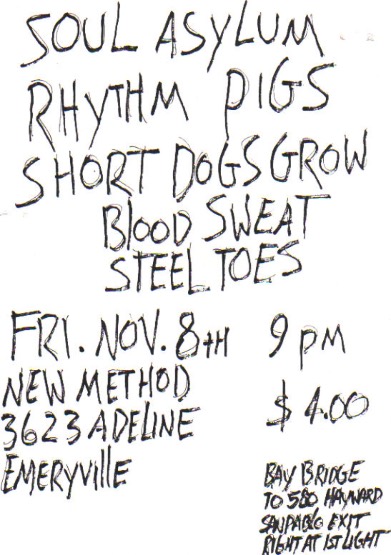 SOUL ASYLUM
RHYTHM PIGS
SHORT DOGS GROW
BLOOD SWEAT
STEEL TOES
FRI. NOV. 8TH 9 PM
NEW METHOD
$4.00
3623 ADELINE
EMERYVILLE
BAY BRIDGE
TO 580 HAYWARD
SAN PABLO EXIT
RIGHT AT 1ST LIGHT